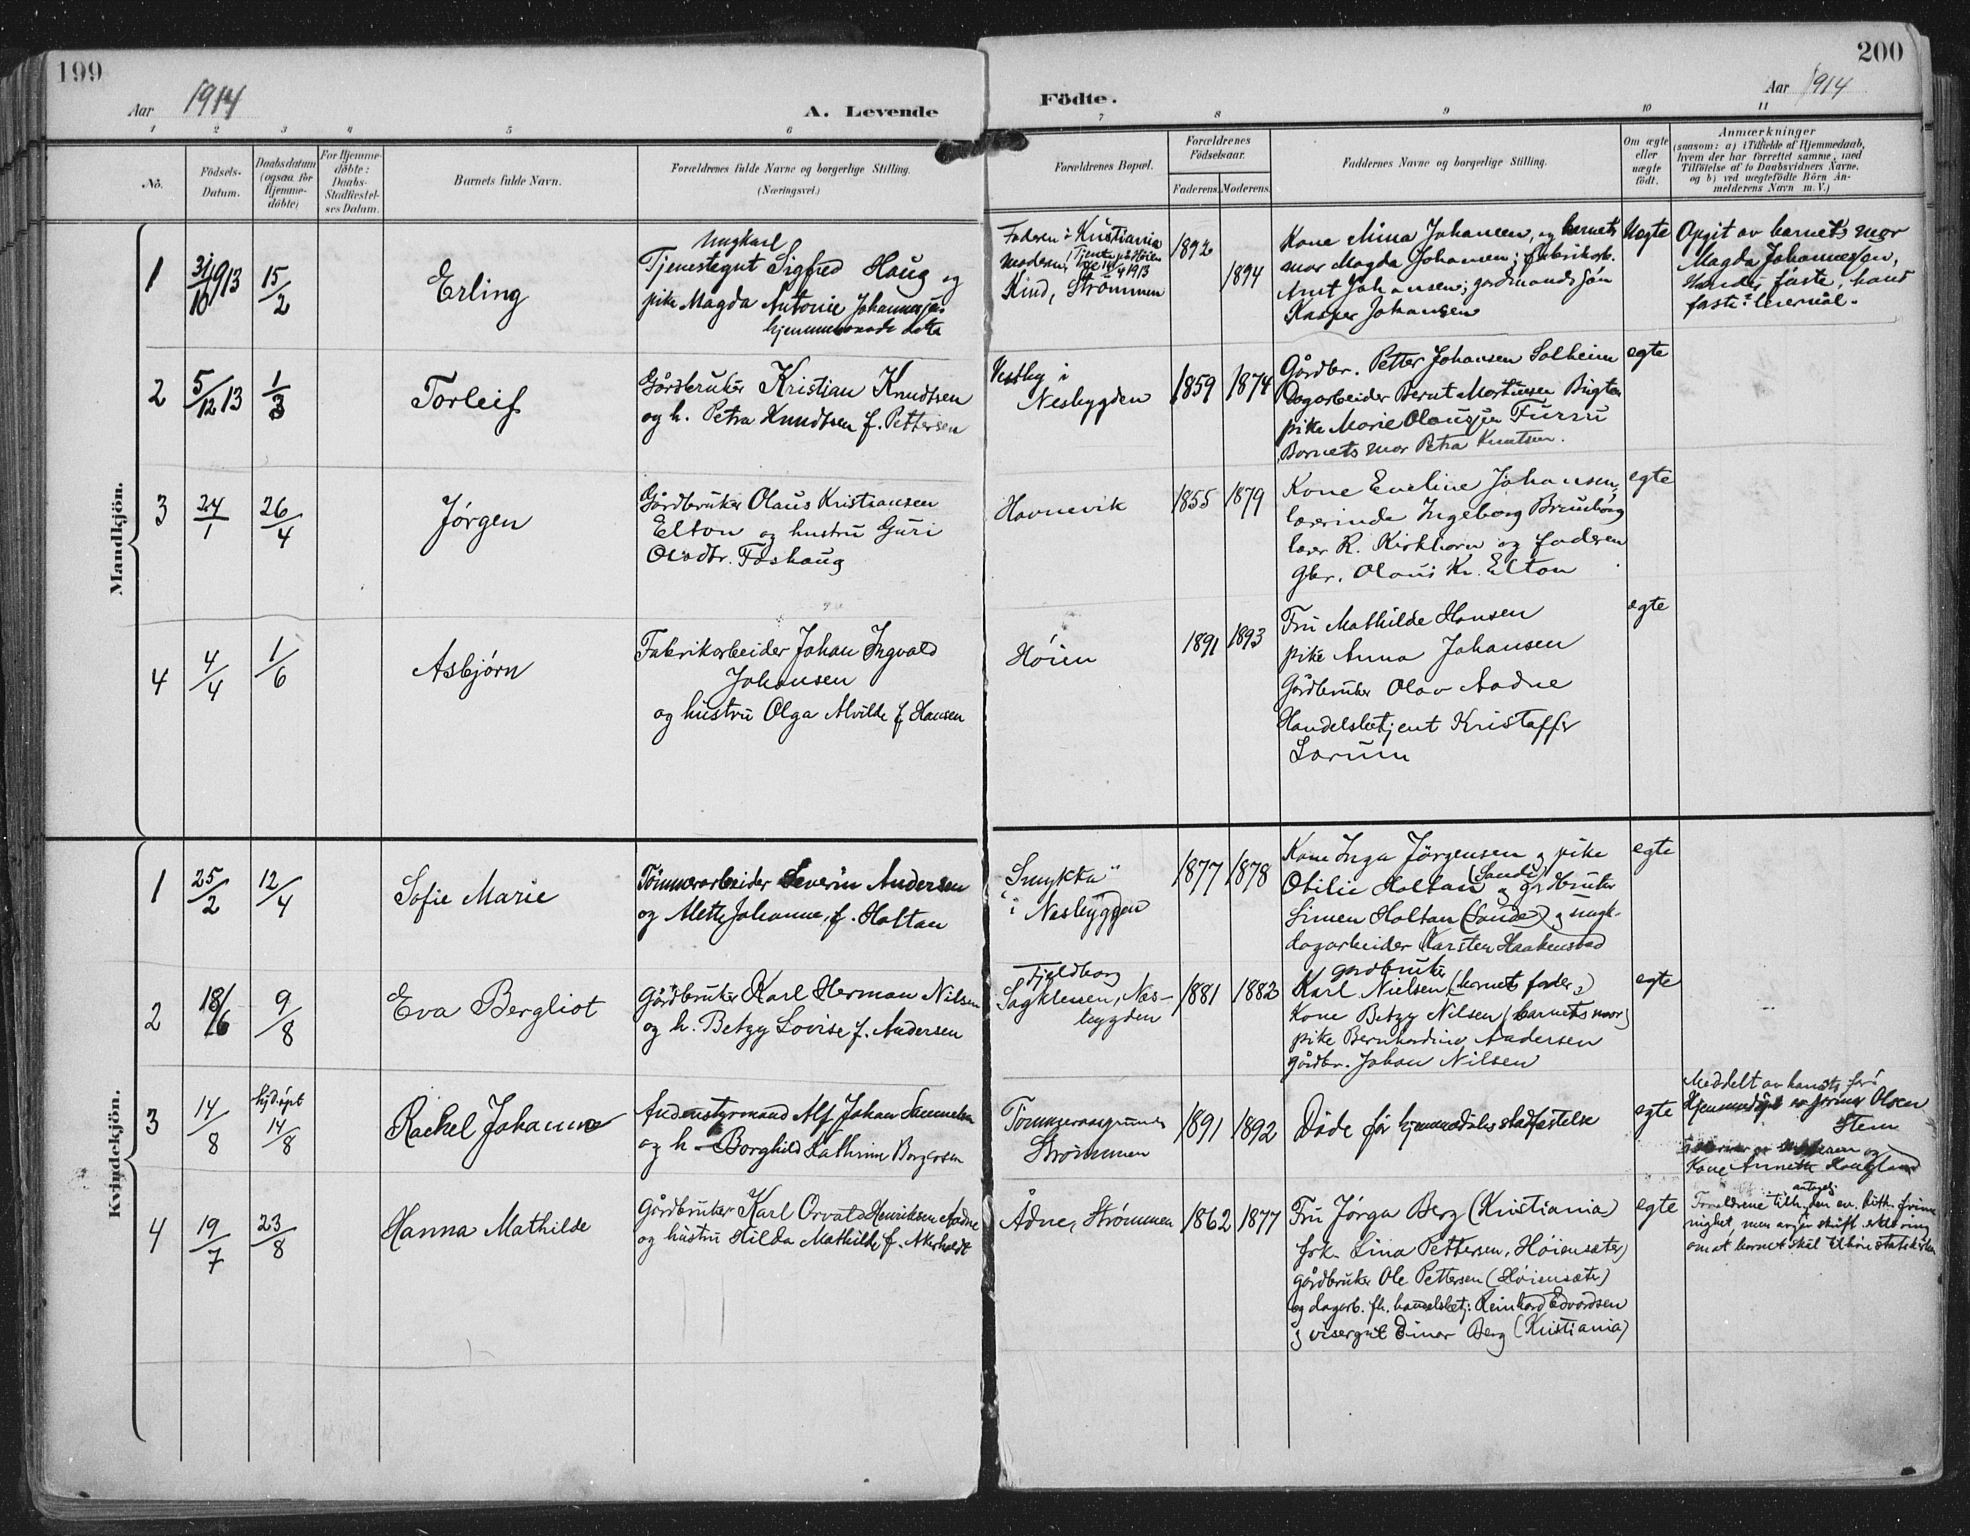 199
Aar 1914
A. Levende
1 2 3 4 5 6
No.
Födsels-
Datum.
Daabsdatum
(ogsaa for
Hjemme-
døbte)
For Hjemme-
døbte:
Daabs-
Stadfæstel-
ses Datum.
Barnets fulde Navn.
Forældrenes fulde Navne og borgerlige Stilling.
(Næringsvei.)
Mandkjön.
1 31/10 1913 15/2 Erling
Ungkarl
Tjenestegut Sigfred Haug og
pike Magda Antonie Johannesen
hjemmeværende datter
2 5/12 13 1/3 Torleif
Gårdbruker Kristian Knudtsen
og h. Petra Knudtsen f. Pettersen
3 24/1 26/4 Jørgen
Gårdbruker Olaus Kristiansen
Elton og hustru Guri
Foshaug
4 4/4 1/6 Asbjørn
Fabrikarbeider Johan Ingvald
Johansen
og hustru Olga Alvilde f Hansen
Kvindekjön.
1 25/2 12/4 Sofie Marie
Tömmerarbeider Severin Andersen
og Alette Johanne, f. Holtan
2 18/6 9/8 Eva Bergliot
Gårdbruker Karl Herman Nilsen
og h. Betzy Lovise f. Andersen
3 14/8 hjdöpt 14/8 Rachel Johanne
Andenstyrmand Alf Johan Samuelsen
og h. Borghild Kathrine Borgersen
4 19/7 23/8 Hanna Mathilde
Gårdbruker Karl Orvald Henriksen Aadne
og hustru Hilda Mathilde f. Akerholdt
200
Aar 1914
Födte.
7 8 9 10 11
Forældrenes Bopæl.
Forældrenes
Födselsaar.
Faderens. Moderens.
Faddernes Navne og borgerlige Stilling.
Om ægte
eller
uægte
født.
Anmærkninger
(saasom: a) i Tilfælde af Hjemmedaab,
hvem der har forrettet samme, med
Tilföielse af to Daabsvidners Navne,
og b) ved uægtefödte Börn An-
melderens Navn m. V.)
Faderen i Kristiania
Moderen, Tjente på Høien
14/4 1913
Kind, Strømmen
1892 1894
Kone Mina Johansen, og barnets
mor Magda Johansen; fabrikarb.
Arnt Johansen; gardmandssøn
Kasper Johansen
Uegte
Opgit av barnets mor
Magda Johannessen,
Hendes første, hans
første leiermål.
Vestby i
Nesbygden
1859 1874
Gårdbr. Petter Johansen Solheim
Dagarbeider Bernt Mortensen Bugten
pike Marie Olausen Furru
Barnets mor Petra Knutsen.
egte
Havnevik
1855 1879
Kone Eveline Johansen,
lærerinde Ingeborg Breuborg
lærer K. Kirkhorn og faderen
gbr. Olaus Kr. Elton
egte
Höien
1891 1893
Fru Mathilde Hansen
pike Anna Johansen
Gårdbruker Olav Aadne
Handelsbetjent Kristoffer
Sørum
egte
"Smykta"
i Nesbygden
1877 1878
Kone Inga Jörgensen og pike
Otilie Holtan (Sande) og grdbruker
Simen Holtan (Sande) og ungk.
dagarbeider Karsten Haakenstad
egte
Fjeldborg
Sagklenen, Nes-
bygden
1881 1882
gardbruker
Karl Nielsen, (barnets fader,)
Kone Betzy Nilsen (barnets mor)
pike Bernhardine Andersen
gårdbr. Johan Nilsen
egte
Strømmen
1891 1892
Döde før hjemmedåbs stadfæstelse
egte
Meddelt av barnets far:
Hjemmedöpt av Olsen
Stem
Kone Annette Haugland
Ådne, Strømmen
1862 1877
Fru Jørga Berg (Kristiania)
frk. Lina Pettersen, Høiensæter)
Gårdbruker Ole Pettersen (Høiensæter)
og dagarb. fh. handelsbetj: Reinhard Edvardsen
og visergut Einar Berg (Kristiania)
egte
antagelig
Forældrene tilh. den ev. luth. frime-
nighet, men avgir skrift. erklæring
om at barnet skal tilhøre statskirken